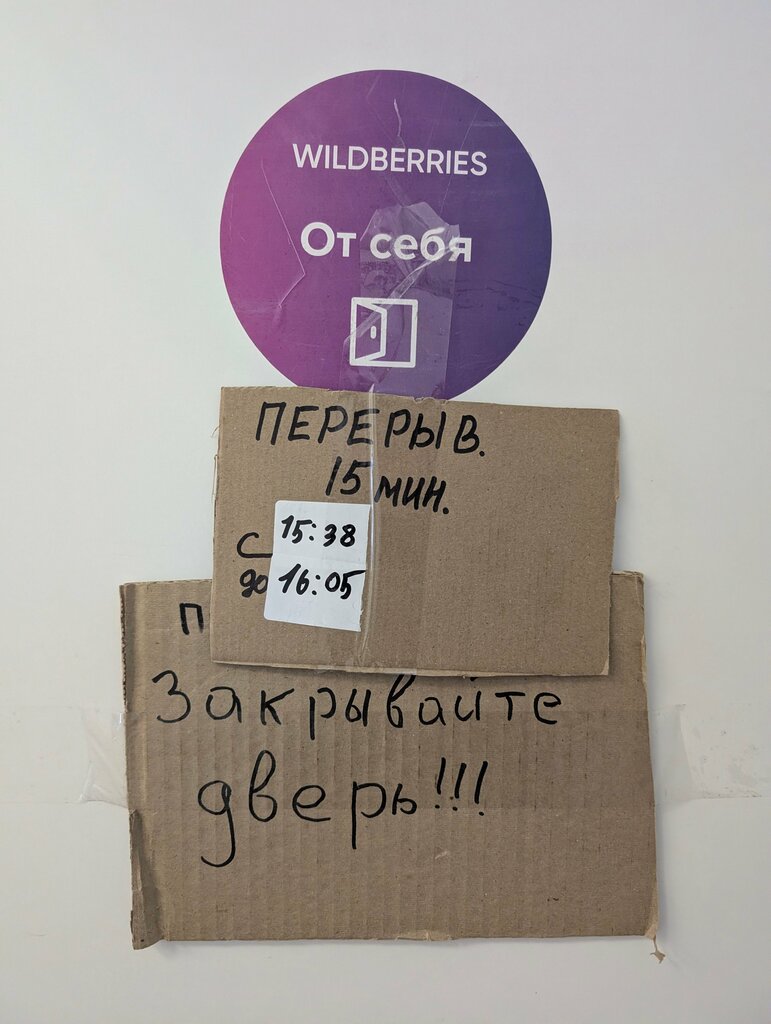 WILDBERRIES
От себя
ПЕРЕРЫВ.
15 мин.
с 15:38
до 16:05
Закрывайте
дверь!!!